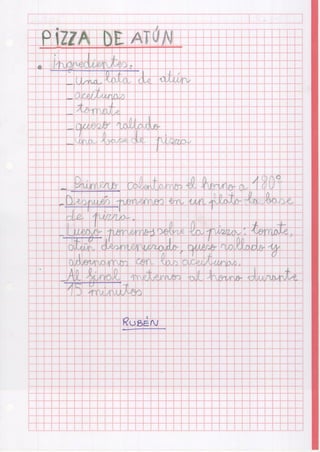 PIZZA DE ATÚN
• Ingredientes:
_ una lata de atún
_ aceitunas
_ tomate
_ queso rallado
_ una base de pizza
_ Primero calentamos el horno a 180º
_ Después ponemos en un plato la base
de pizza.
_ Luego ponemos sobre la pizza: tomate,
atún desmenuzado, queso rallado y
adornamos con las aceitunas.
_ Al final metemos al horno durante
15 minutos
RUBÉN